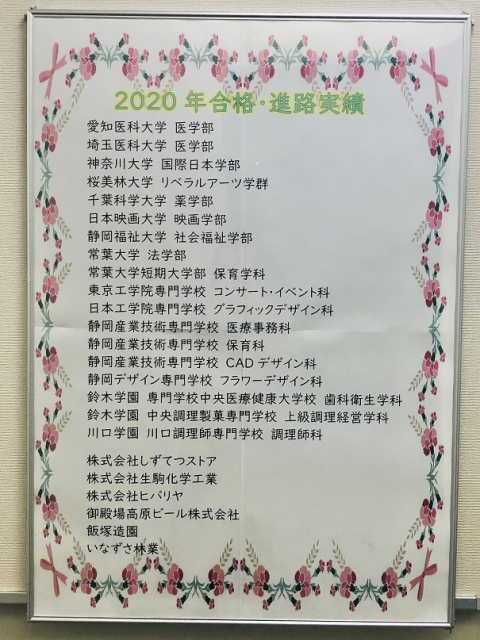 2020 年合格・進路実績
愛知医科大学 医学部
埼玉医科大学 医学部
神奈川大学 国際日本学部
桜美林大学 リベラルアーツ学群
千葉科学大学 薬学部
日本映画大学 映画学部
静岡福祉大学 社会福祉学部
常葉大学 法学部
常葉大学短期大学部 保育学科
東京工学院専門学校 コンサート・イベント科
日本工学院専門学校 グラフィックデザイン科
静岡産業技術専門学校 医療事務科
静岡産業技術専門学校 保育科
静岡産業技術専門学校 CADデザイン科
静岡デザイン専門学校 フラワーデザイン科
鈴木学園 専門学校中央医療健康大学校 歯科衛生学科
鈴木学園 中央調理製菓専門学校 上級調理経営学科
川口学園 川口調理師専門学校 調理師科
株式会社しずてつストア
株式会社生駒化学工業
株式会社ヒバリヤ
御殿場高原ビール株式会社
飯塚造園
いなずさ林業